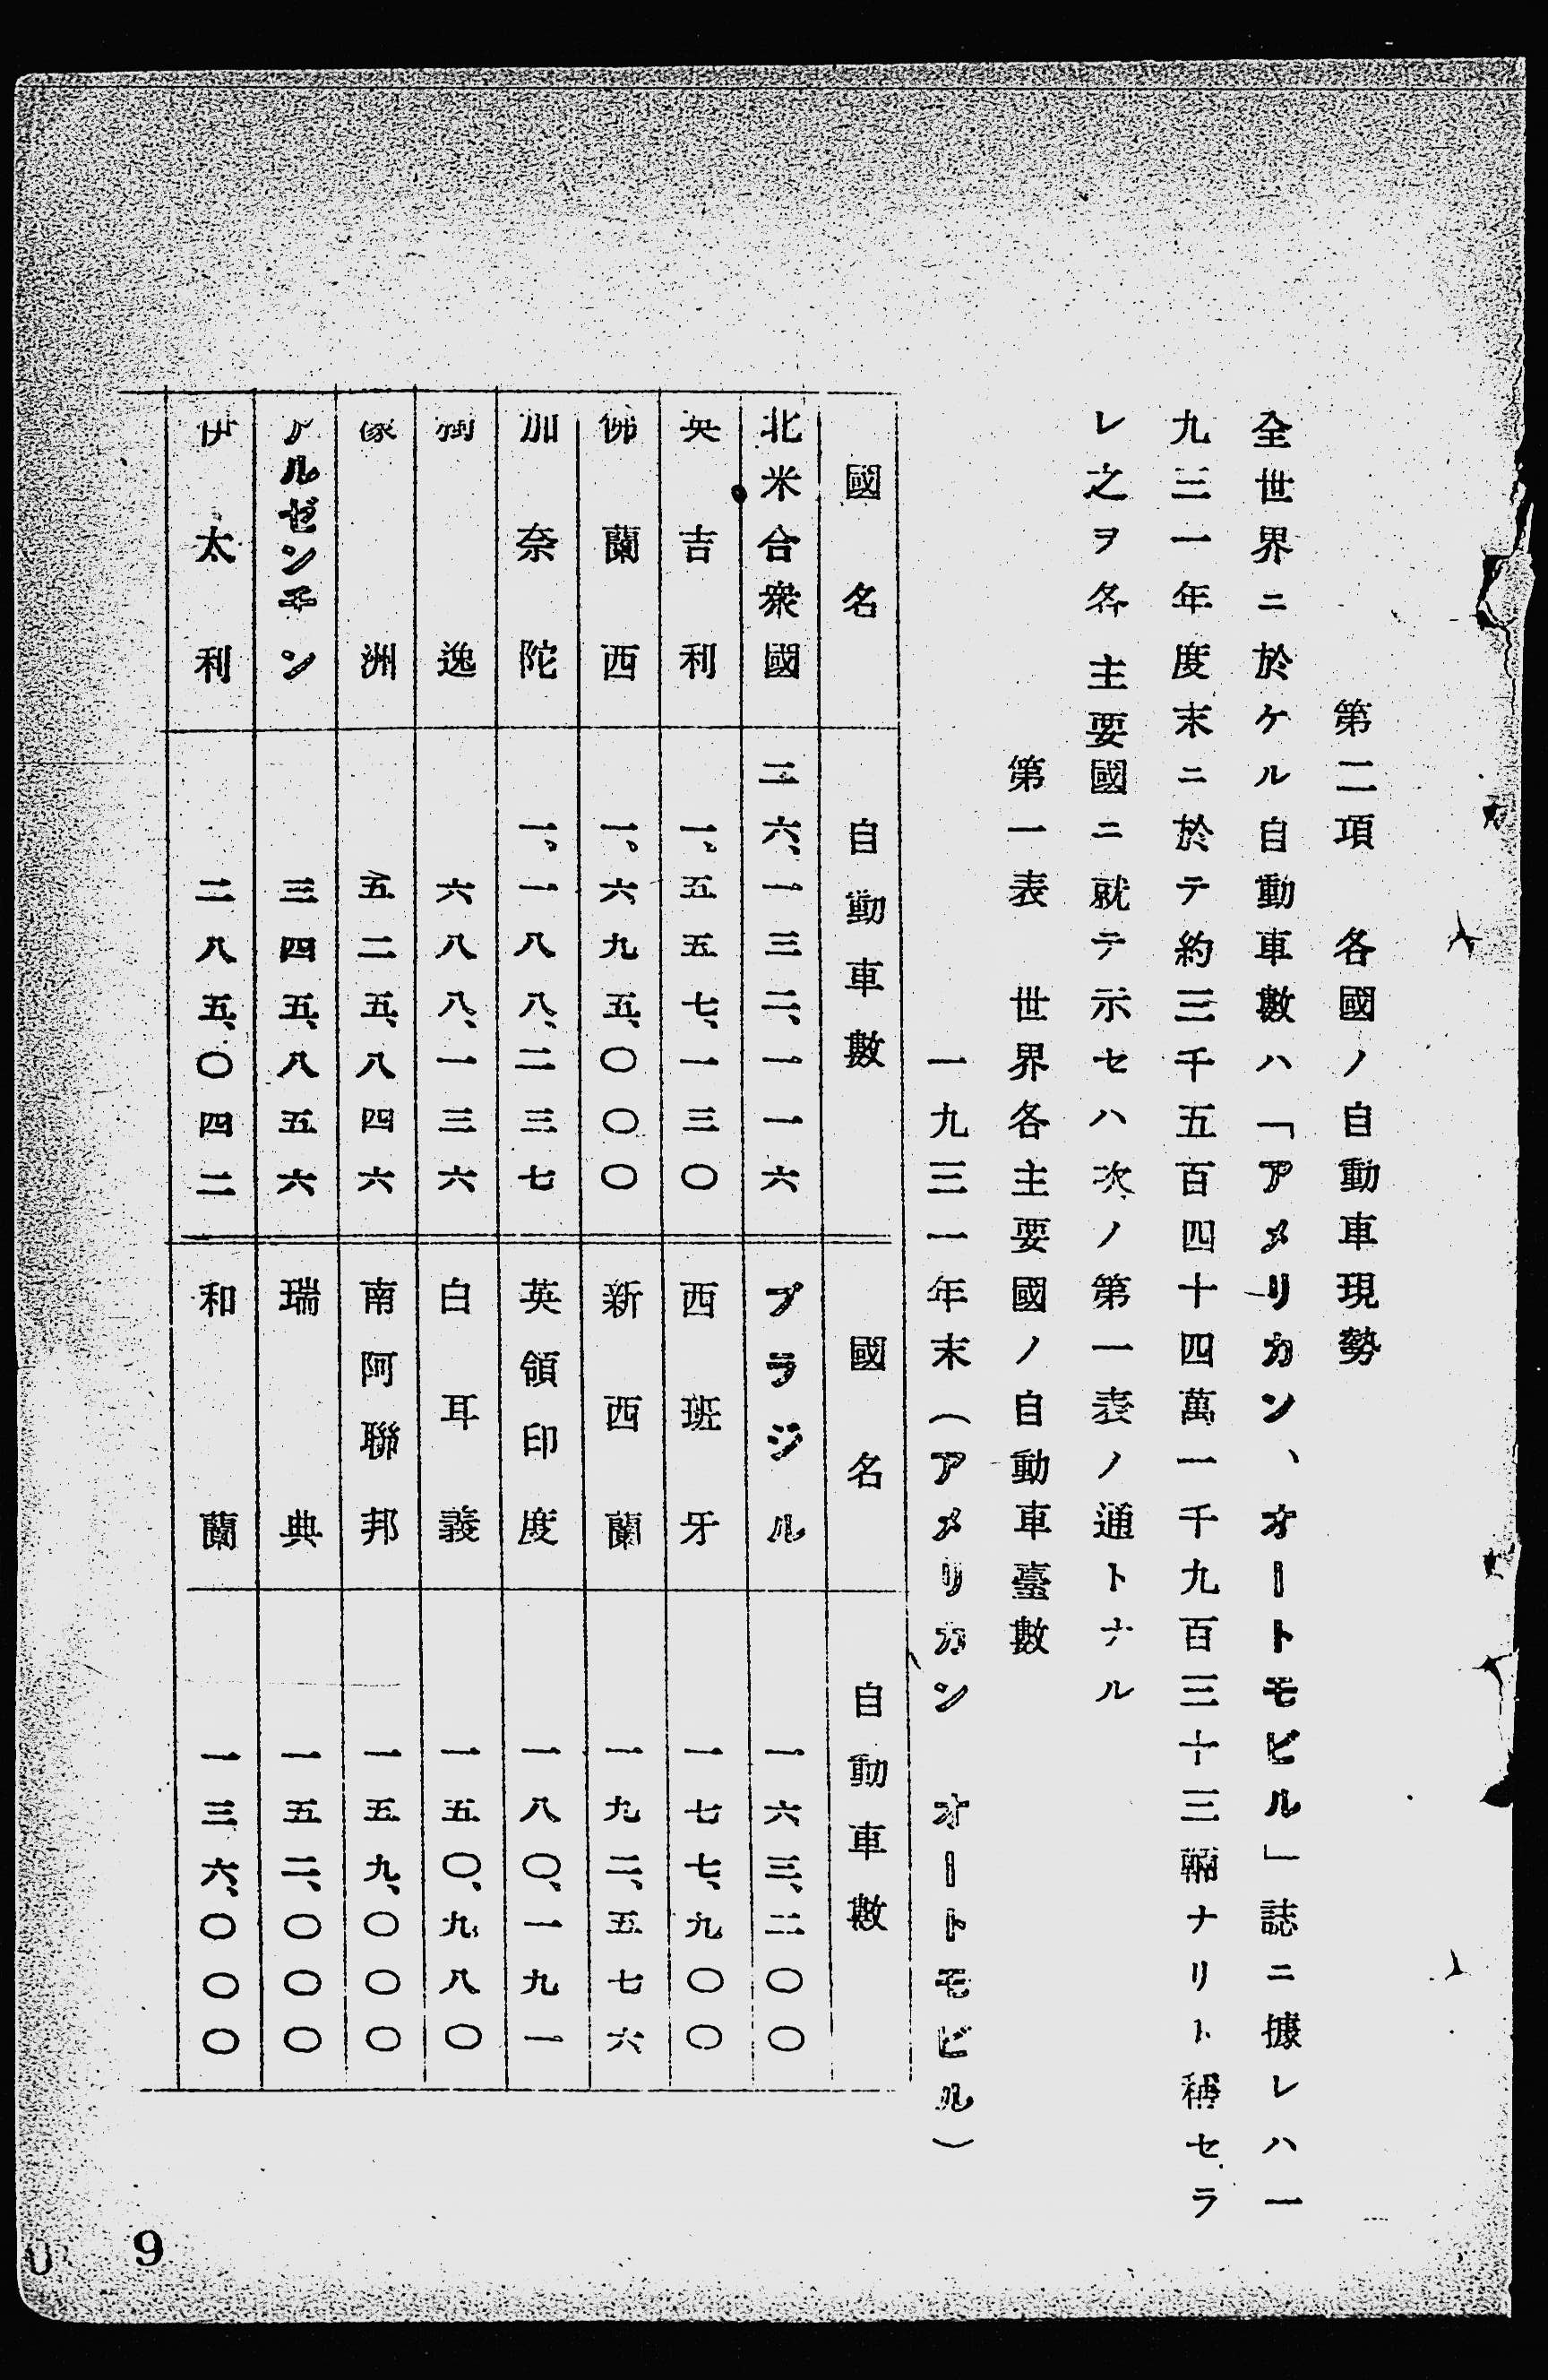 第二項　各國ノ自動車現勢
全世界ニ於ケル自動車數ハ「アメリカン、オートモビル」誌ニ據レハ一
九三一年度末ニ於テ約三千五百四十四萬一千九百三十三輛ナリト稱セラ
レ之ヲ各主要國ニ就テ示セハ次ノ第一表ノ通トナル
第一表　世界各主要國ノ自動車臺數
一九三一年末（アメリカン　オートモビル）
國名　自動車數　國名　自動車數
北米合衆國　二六、一三二、一一六　ブラジル　一六三、二〇〇
英吉利　一、五五七、一三〇　西班牙　一七七、九〇〇
佛蘭西　一、六九五、〇〇〇　新西蘭　一九二、五七六
加奈陀　一、一八八、二三七　英領印度　一八〇、一九一
獨逸　六八八、一三六　白耳義　一五〇、九八〇
濠洲　五二五、八四六　南阿聯邦　一五九、〇〇〇
アルゼンチン　三四五、八五六　瑞典　一五二、〇〇〇
伊太利　二八五、〇四二　和蘭　一三六、〇〇〇
9